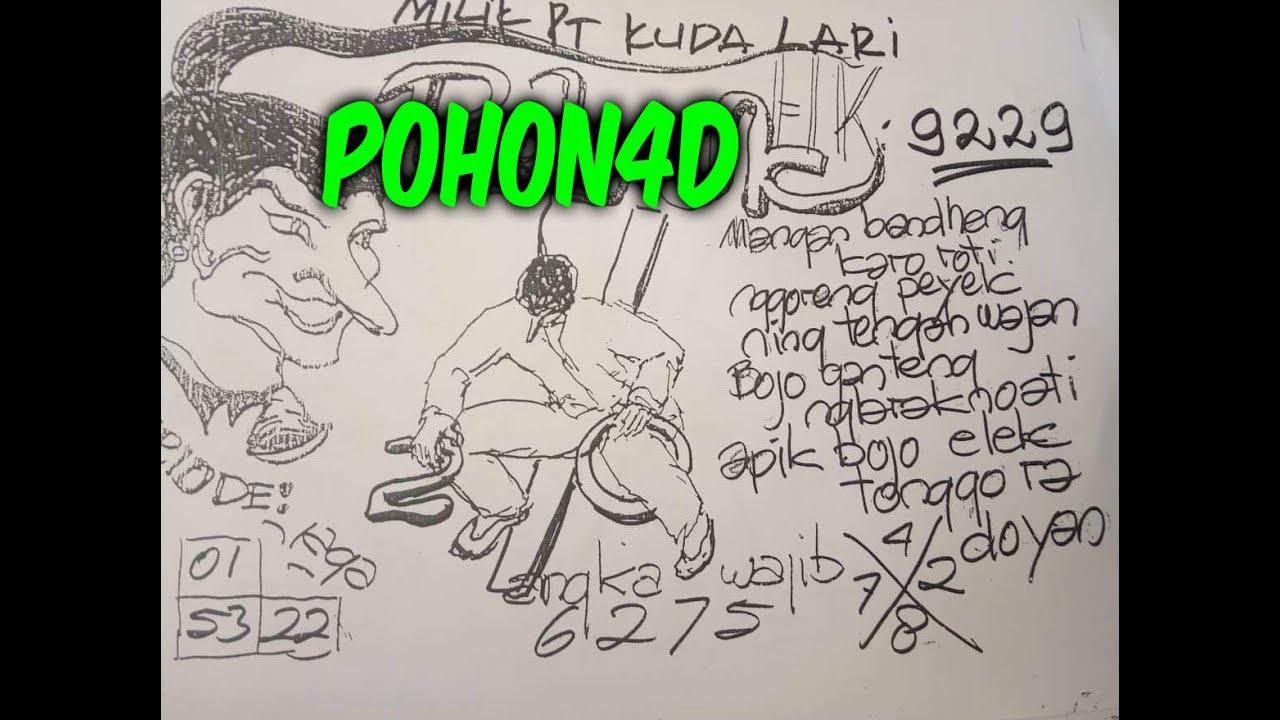 MILIK PT KUDA LARI
POHON4D
9229
Mangan bandheng
karo roti.
nggoreng peyek
ning tengah wajan
Bojo ganteng
apik bojo elek
tonggo ra
doyan
ODE!
01
53 22
angka wajib
6275
4
7 2
8